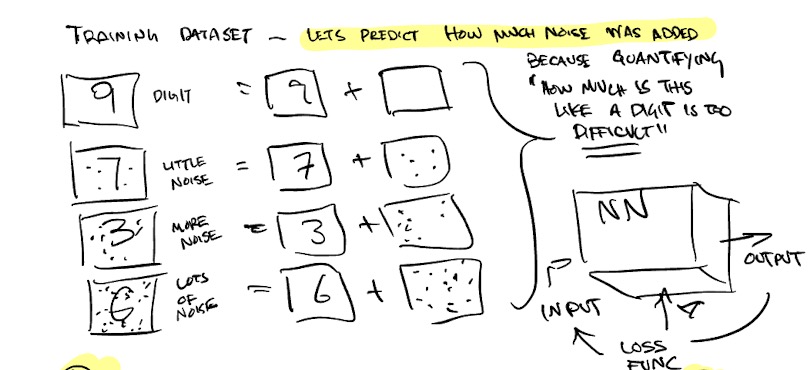 TRAINING DATASET - LETS PREDICT HOW MUCH NOISE WAS ADDED
BECAUSE QUANTIFYING
"HOW MUCH IS THIS
LIKE A DIGIT IS TOO
DIFFICULT"
9 DIGIT = 9 +
7 LITTLE NOISE = 7 +
3 MORE NOISE = 3 +
6 LOTS OF NOISE = 6 +
NN
INPUT
OUTPUT
LOSS
FUNC